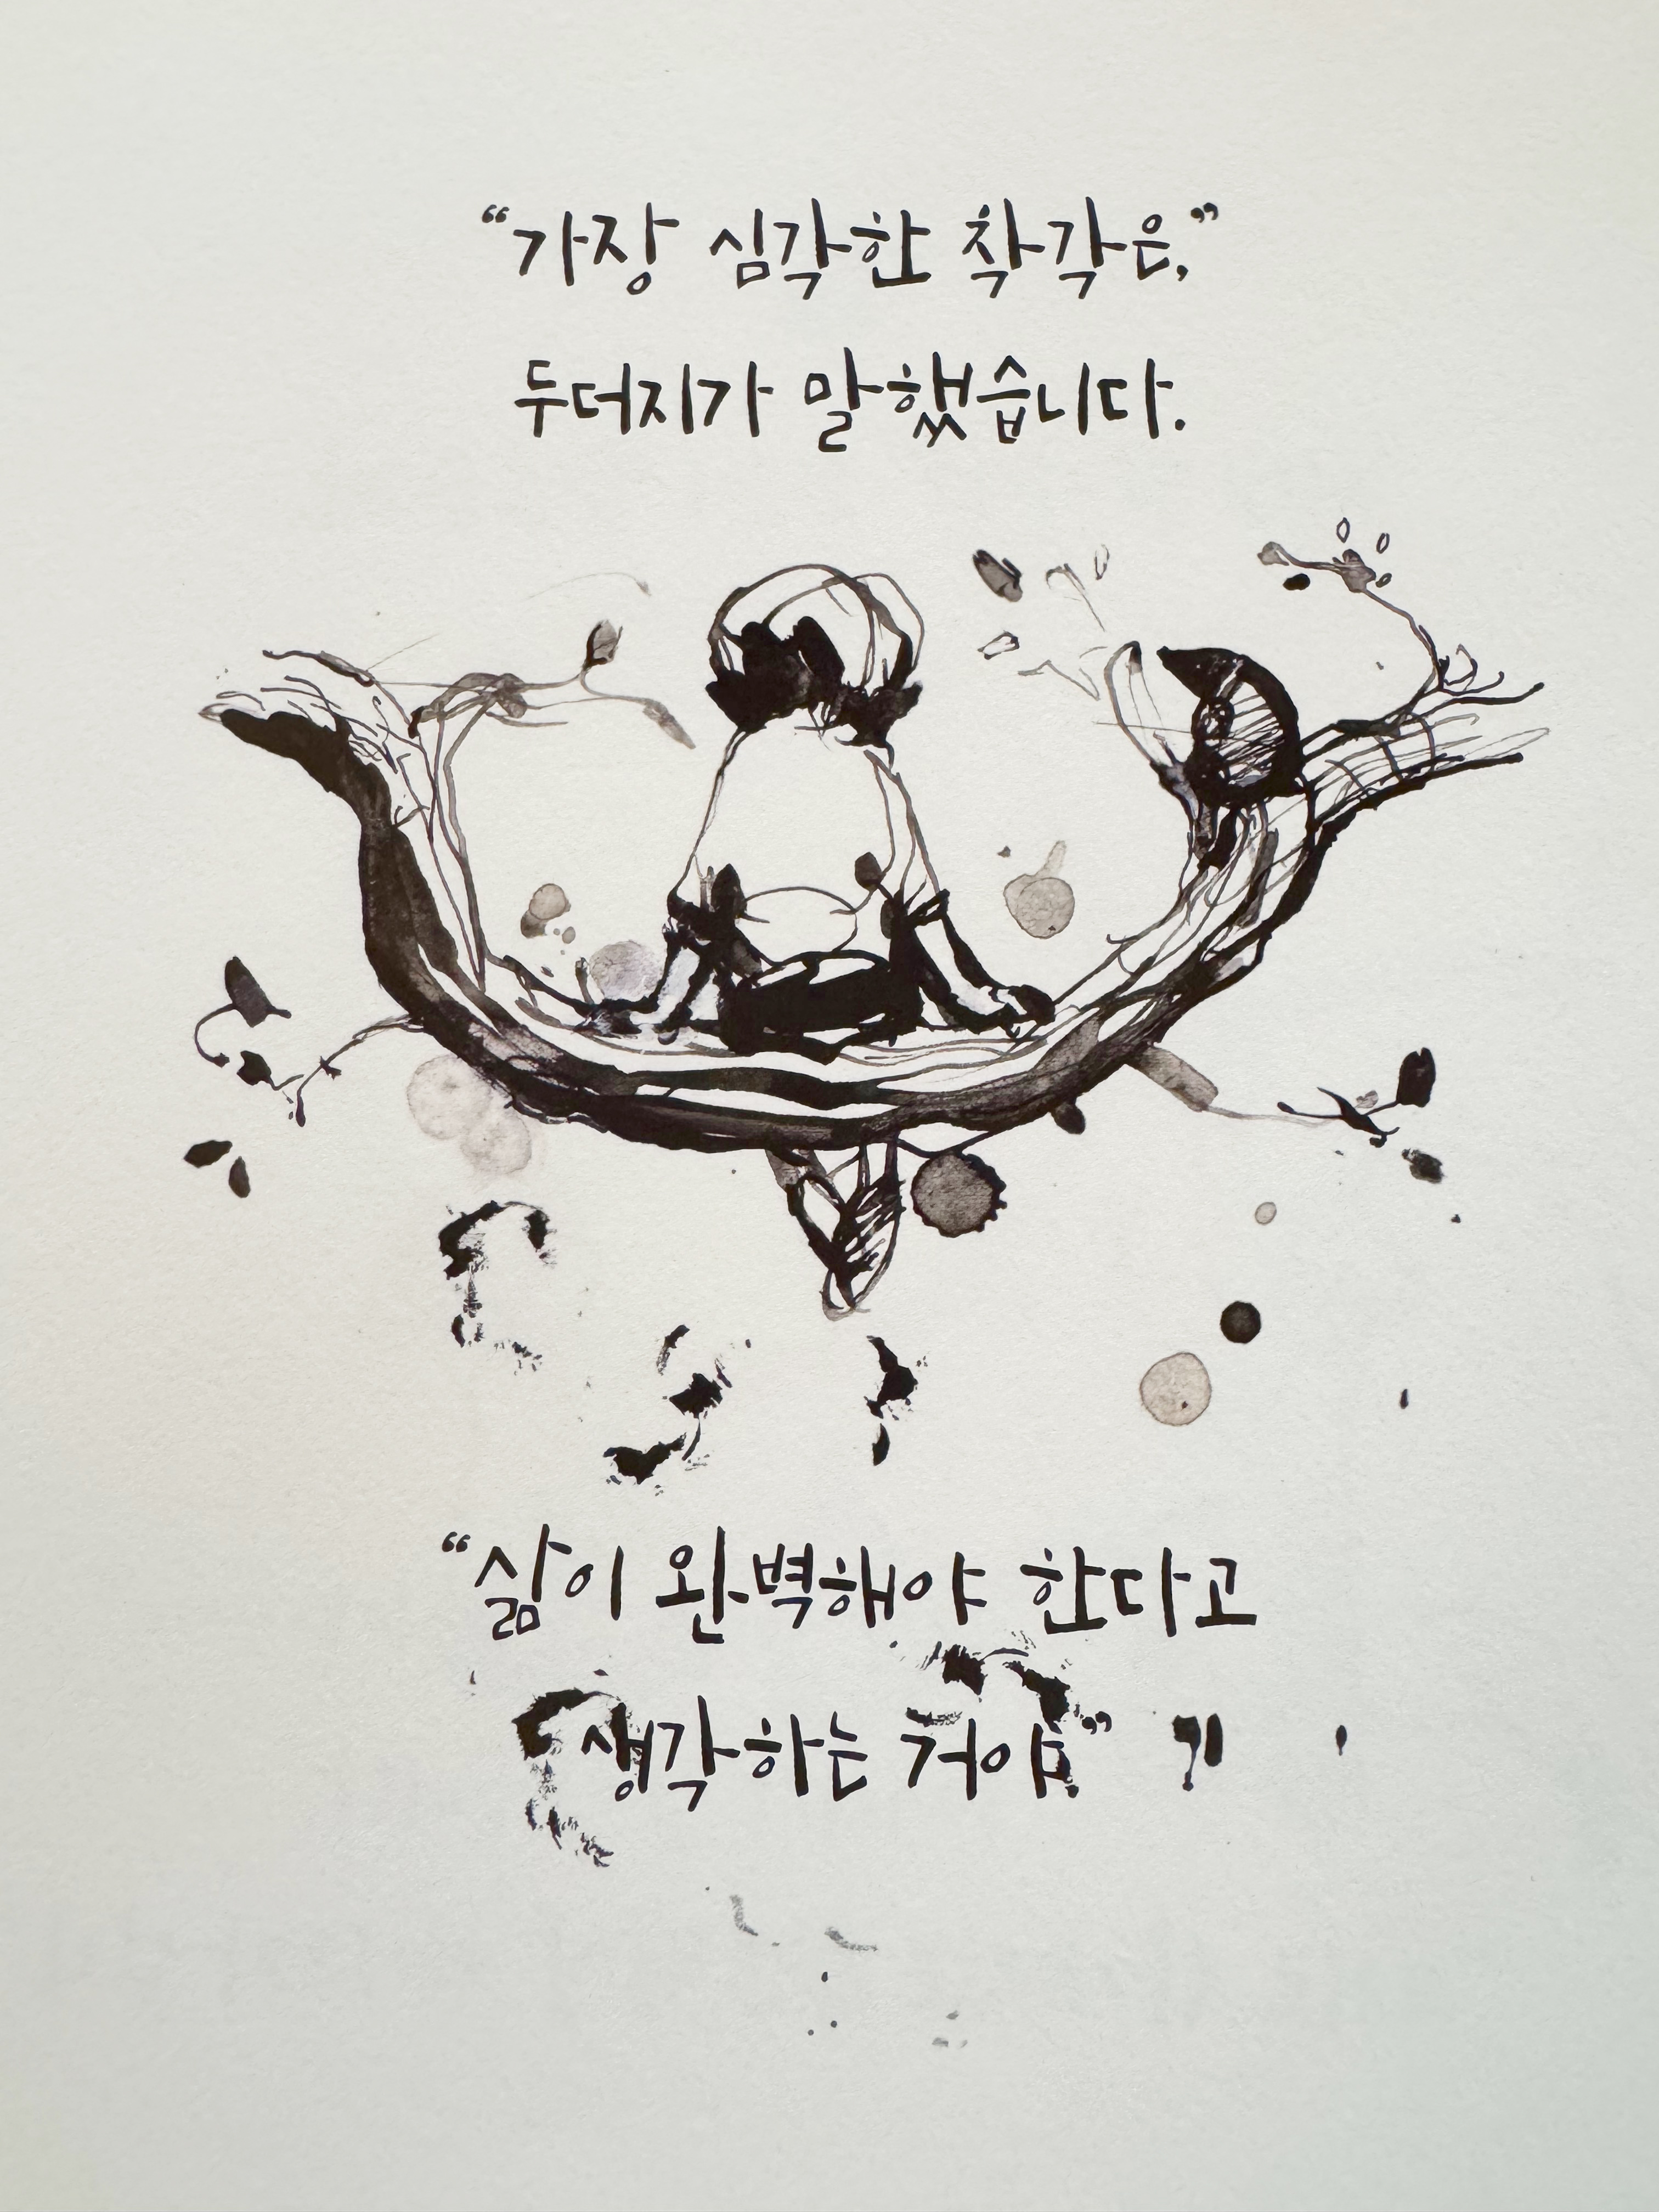 “가장 심각한 착각은,”
두더지가 말했습니다.
“삶이 완벽해야 한다고
생각하는 거야.”